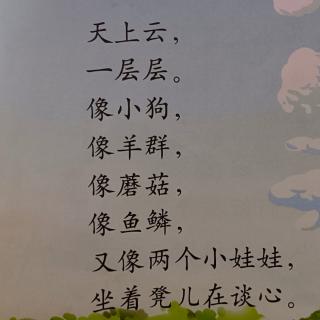 天上云，
一层层。
像小狗，
像羊群，
像蘑菇，
像鱼鳞，
又像两个小娃娃，
坐着凳儿在谈心。